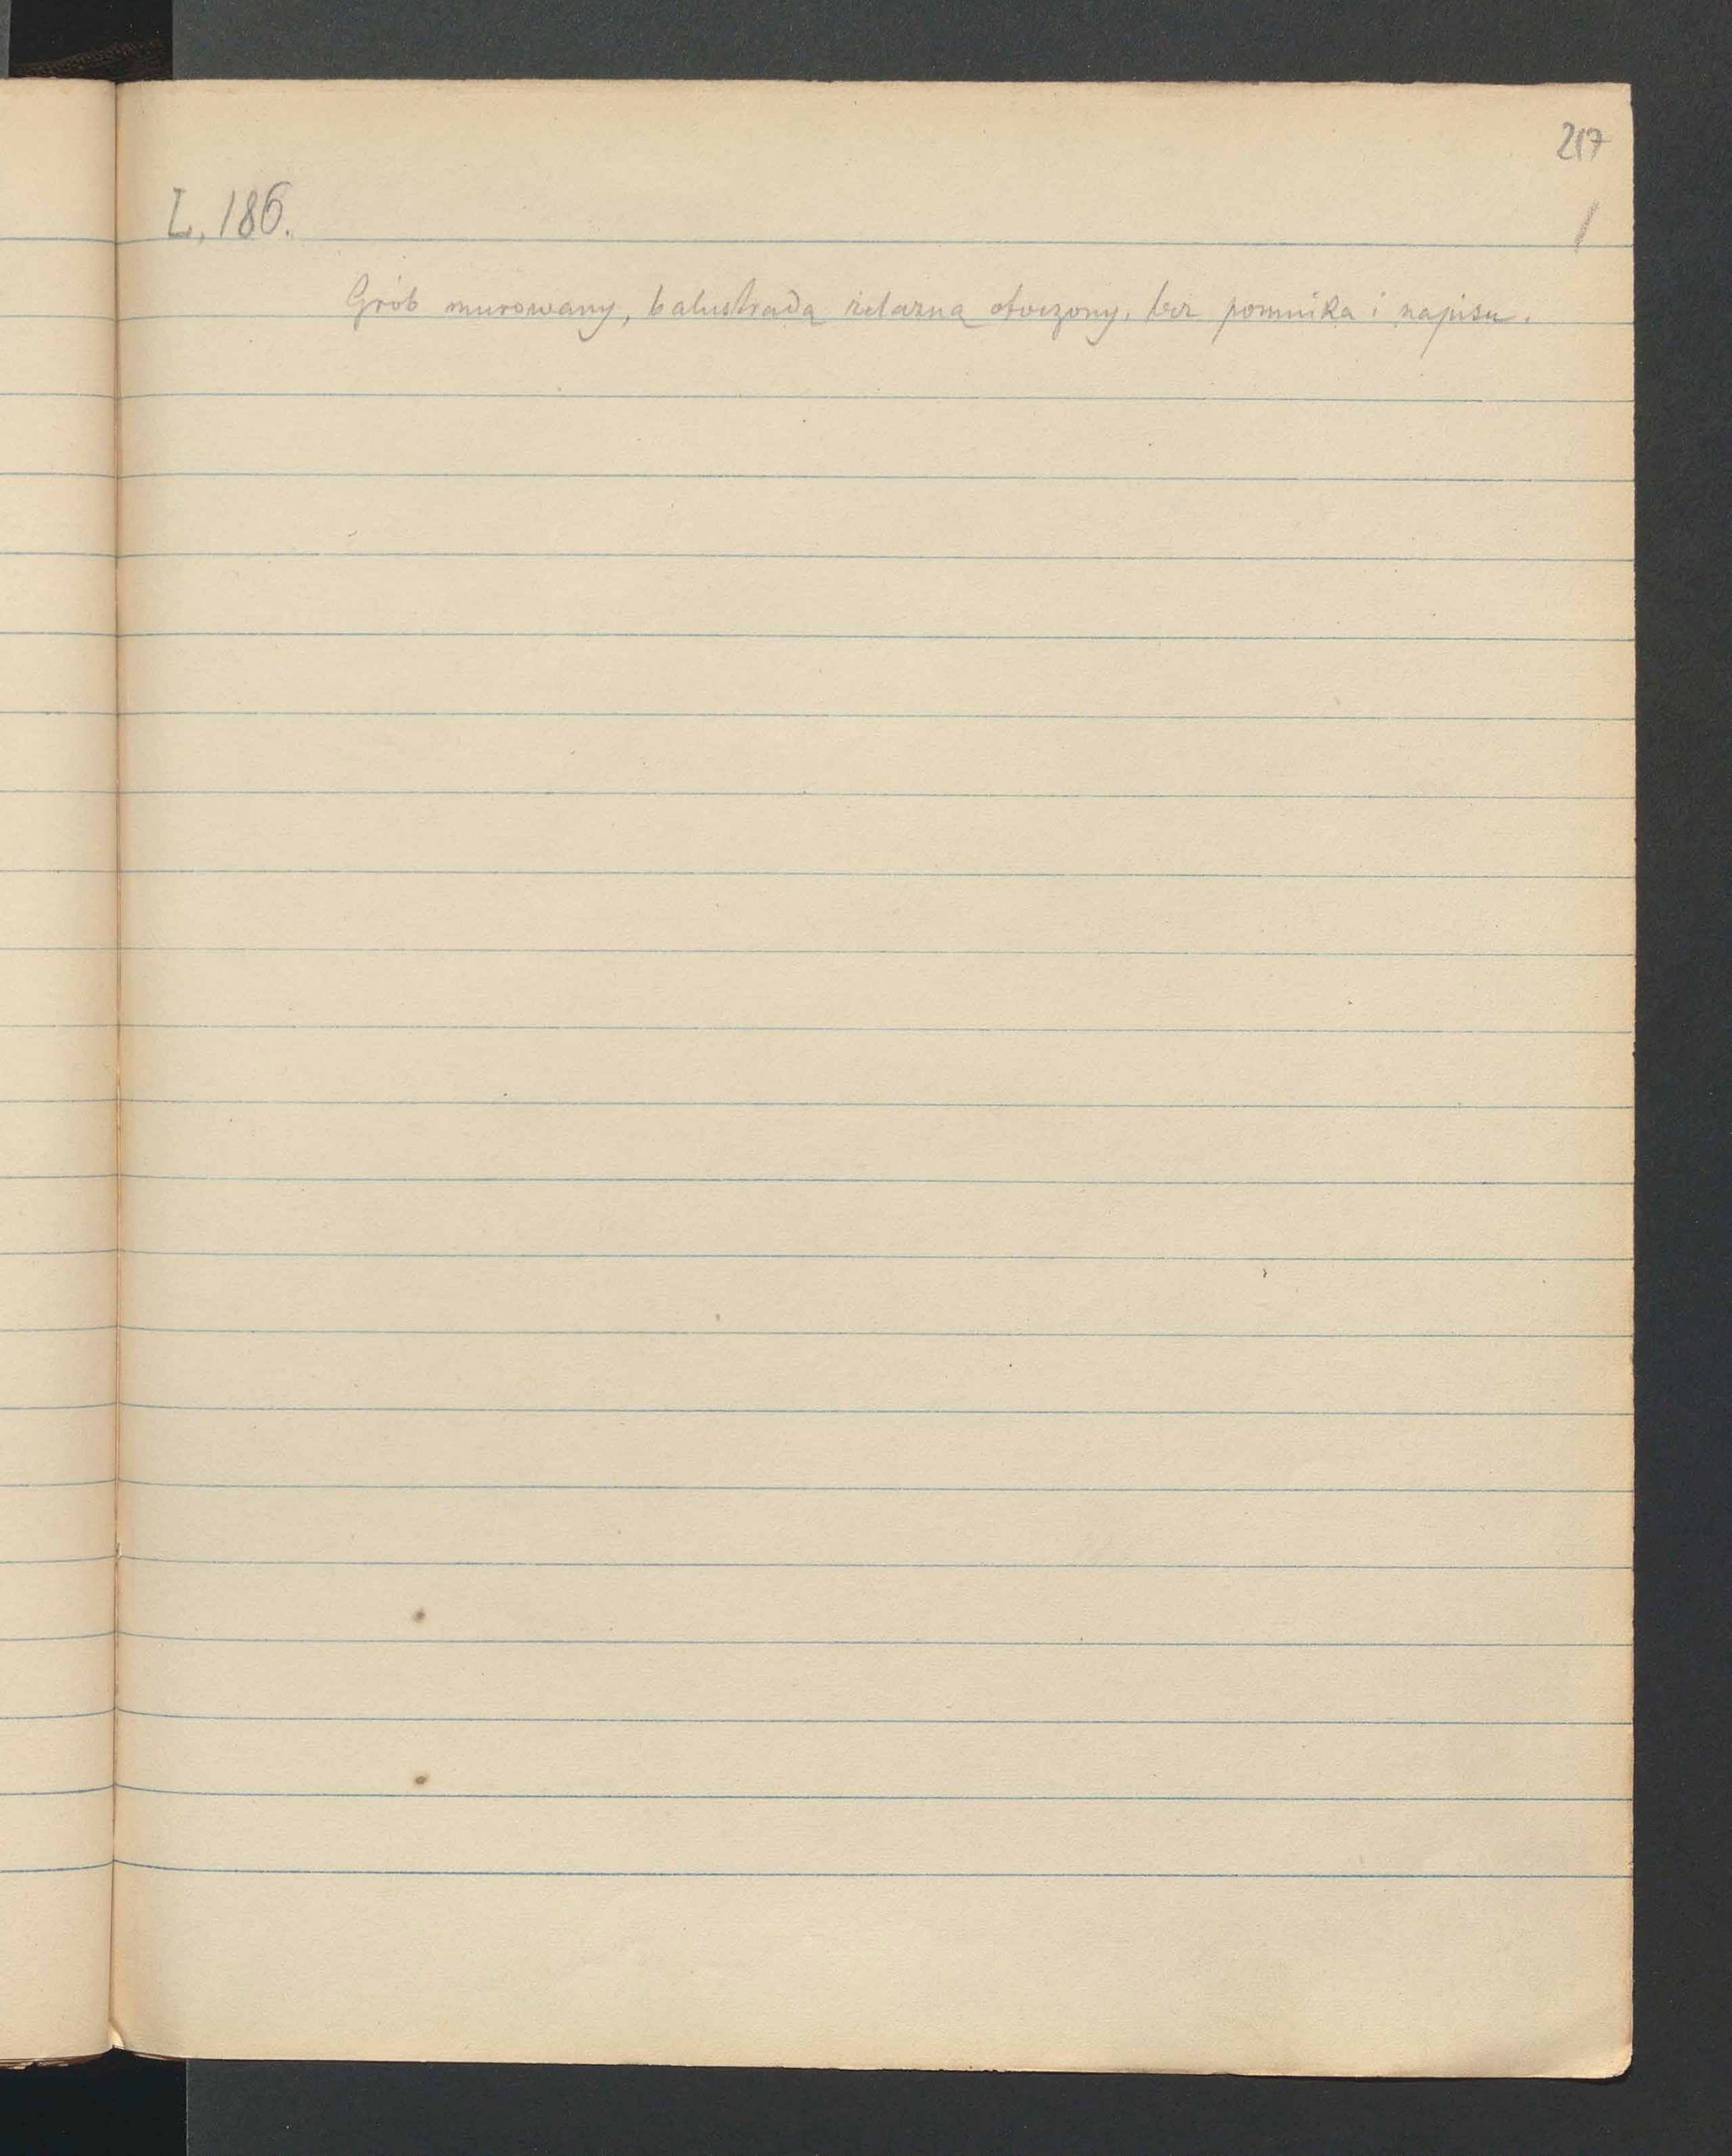 217
L. 186. /
Grób murowany, balustradą żelazną otoczony, bez pomnika i napisu.